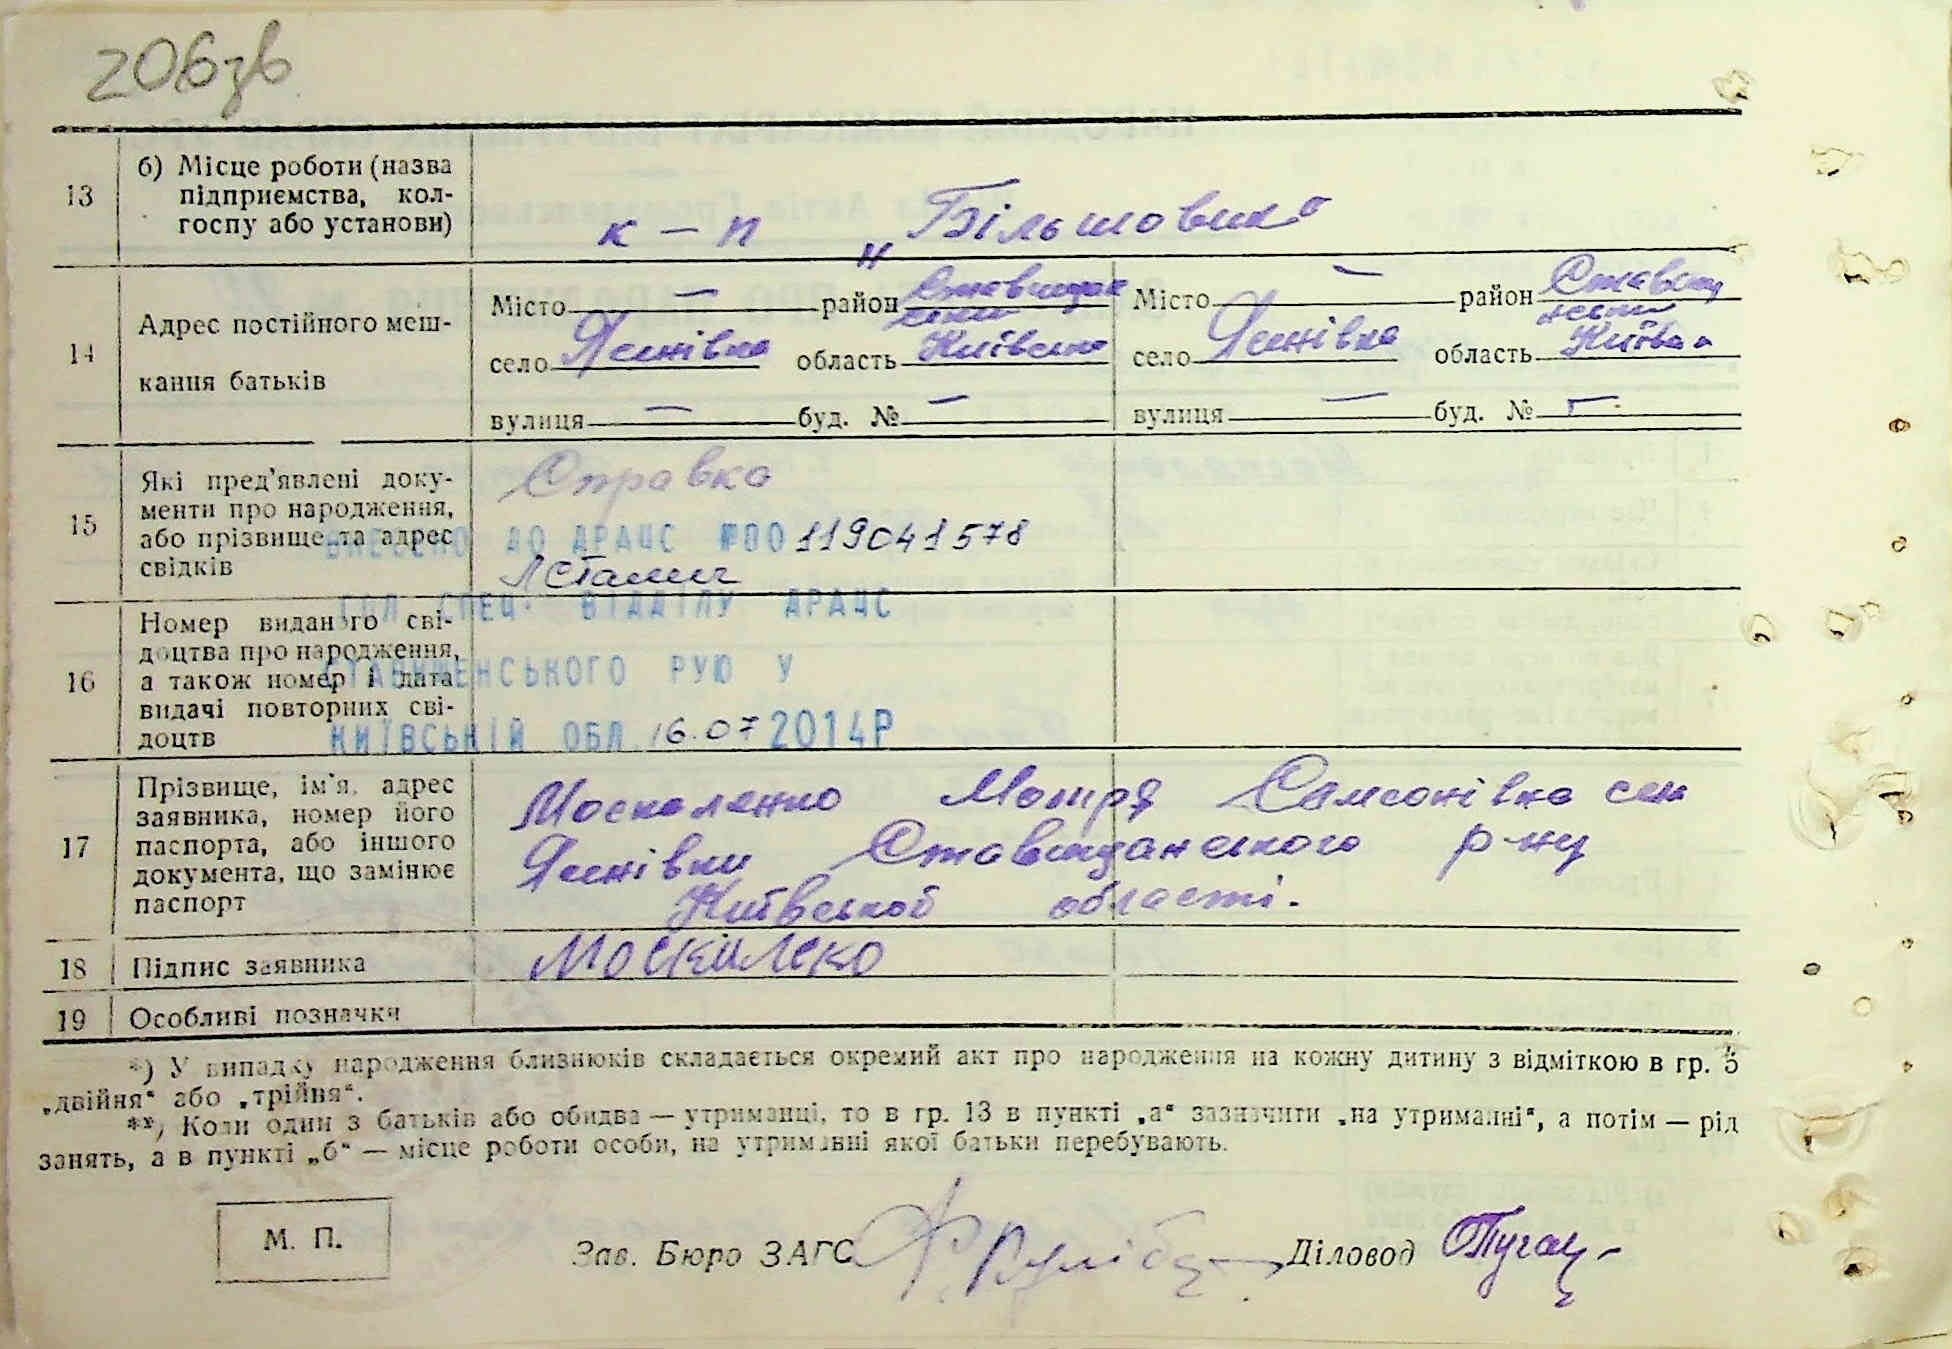 206зв
13
б) Місце роботи (назва
підприємства, кол-
госпу або установи)
к – п „Більшовик"
14
Адрес постійного меш-
кання батьків
Місто — район Ставищан
ський
село Яснівка область Київська
вулиця — буд. № —
Місто — район Ставищ
нський
село Яснівка область Київ
вулиця — буд. № —
15
Які пред'явлені доку-
менти про народження,
або прізвище та адрес
свідків
Справка
ВНЕСЕНО ДО ДРАЦС №00119041578
ГОЛ. СПЕЦ. ВІДДІЛУ ДРАЦС
16
Номер виданого сві-
доцтва про народження,
а також номер і дата
видачі повторних сві-
доцтв
СТАВИЩЕНСЬКОГО РУЮ У
КИЇВСЬКІЙ ОБЛ. 16.07 2014Р
17
Прізвище, ім'я, адрес
заявника, номер його
паспорта, або іншого
документа, що замінює
паспорт
Москаленко Мотря Самсонівка сел
Яснівки Ставищанського р-ну
Київської області.
18
Підпис заявника
Москилеко
19
Особливі позначки
*) У випадку народження близнюків складається окремий акт про народження на кожну дитину з відміткою в гр. 5
„двійня" або „трійня".
**) Коли один з батьків або обидва — утриманці, то в гр. 13 в пункті „а" зазначити „на утриманні", а потім — рід
занять, а в пункті „б" — місце роботи особи, на утриманні якої батьки перебувають.
М. П.
Зав. Бюро ЗАГС
Діловод